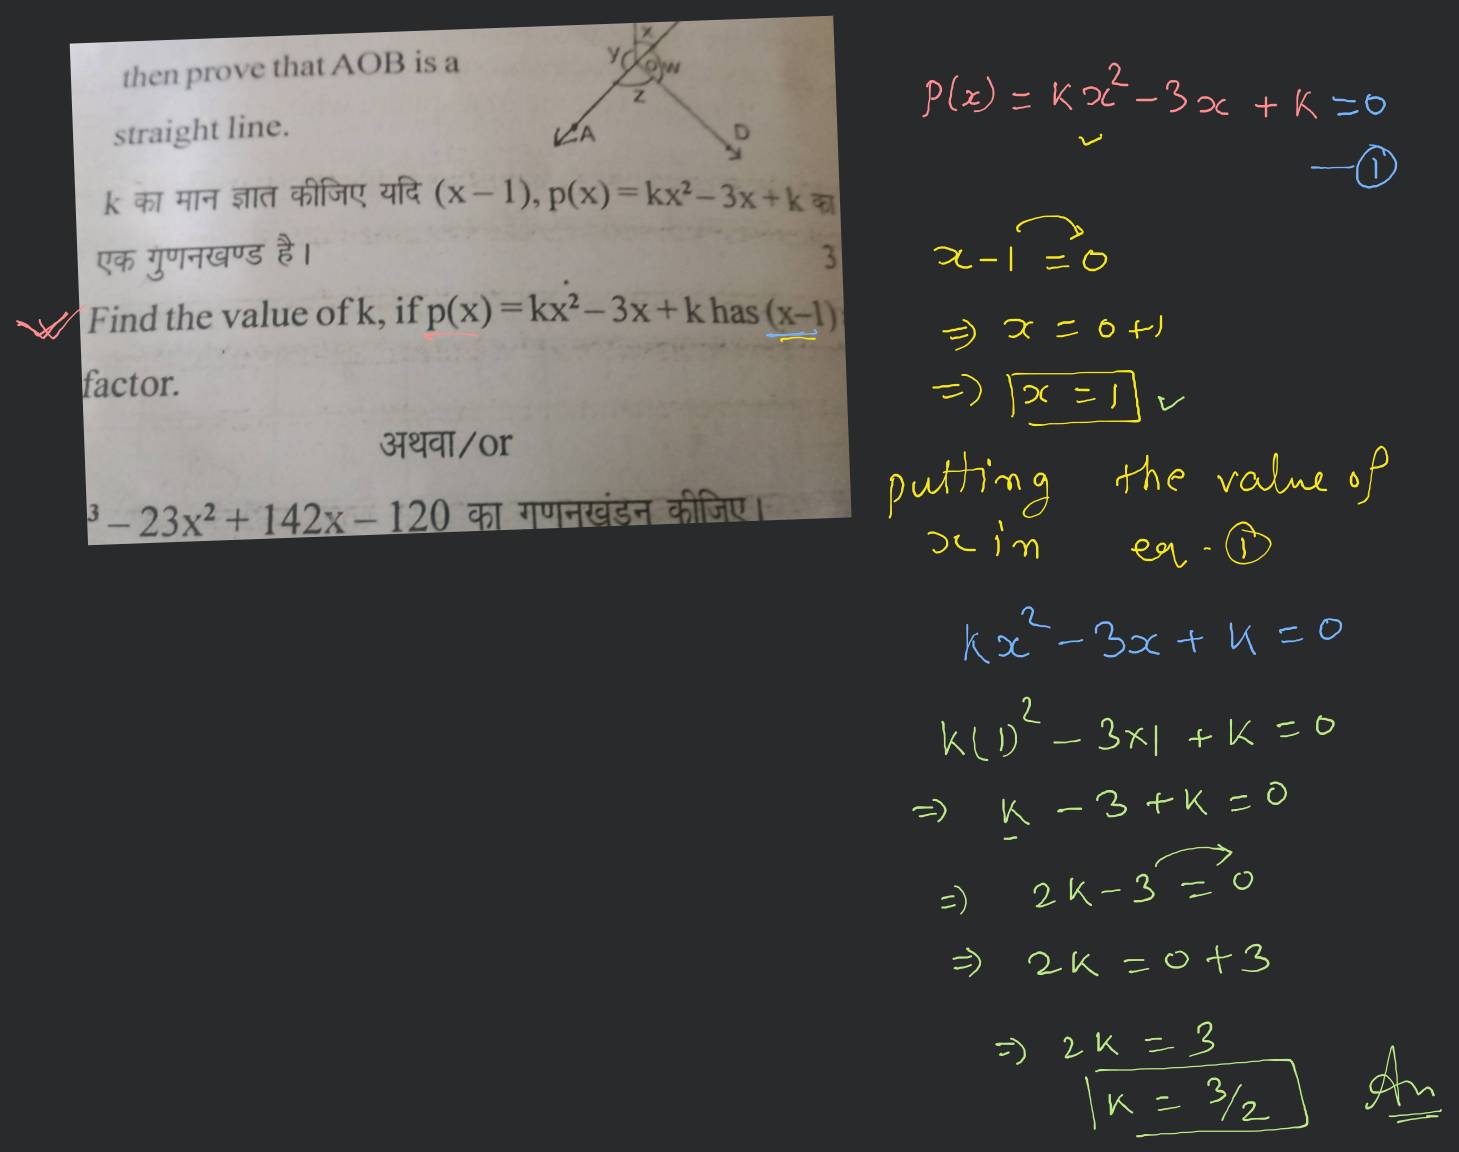 then prove that AOB is a
straight line.
X
Y
O
W
Z
A
D
k का मान ज्ञात कीजिए यदि (x – 1), p(x) = kx² – 3x + k का
एक गुणनखण्ड है।
3
Find the value of k, if p(x) = kx² – 3x + k has (x–1)
factor.
अथवा/or
³ – 23x² + 142x – 120 का गुणनखंडन कीजिए।
P(x) = Kx² – 3x + K = 0
— ①
x – 1 = 0
⇒ x = 0+1
⇒ x = 1 ✓
putting the value of
x in eq. ①
Kx² – 3x + K = 0
K(1)² – 3×1 + K = 0
⇒ K – 3 + K = 0
⇒ 2K – 3 = 0
⇒ 2K = 0 + 3
⇒ 2K = 3
K = 3/2 An